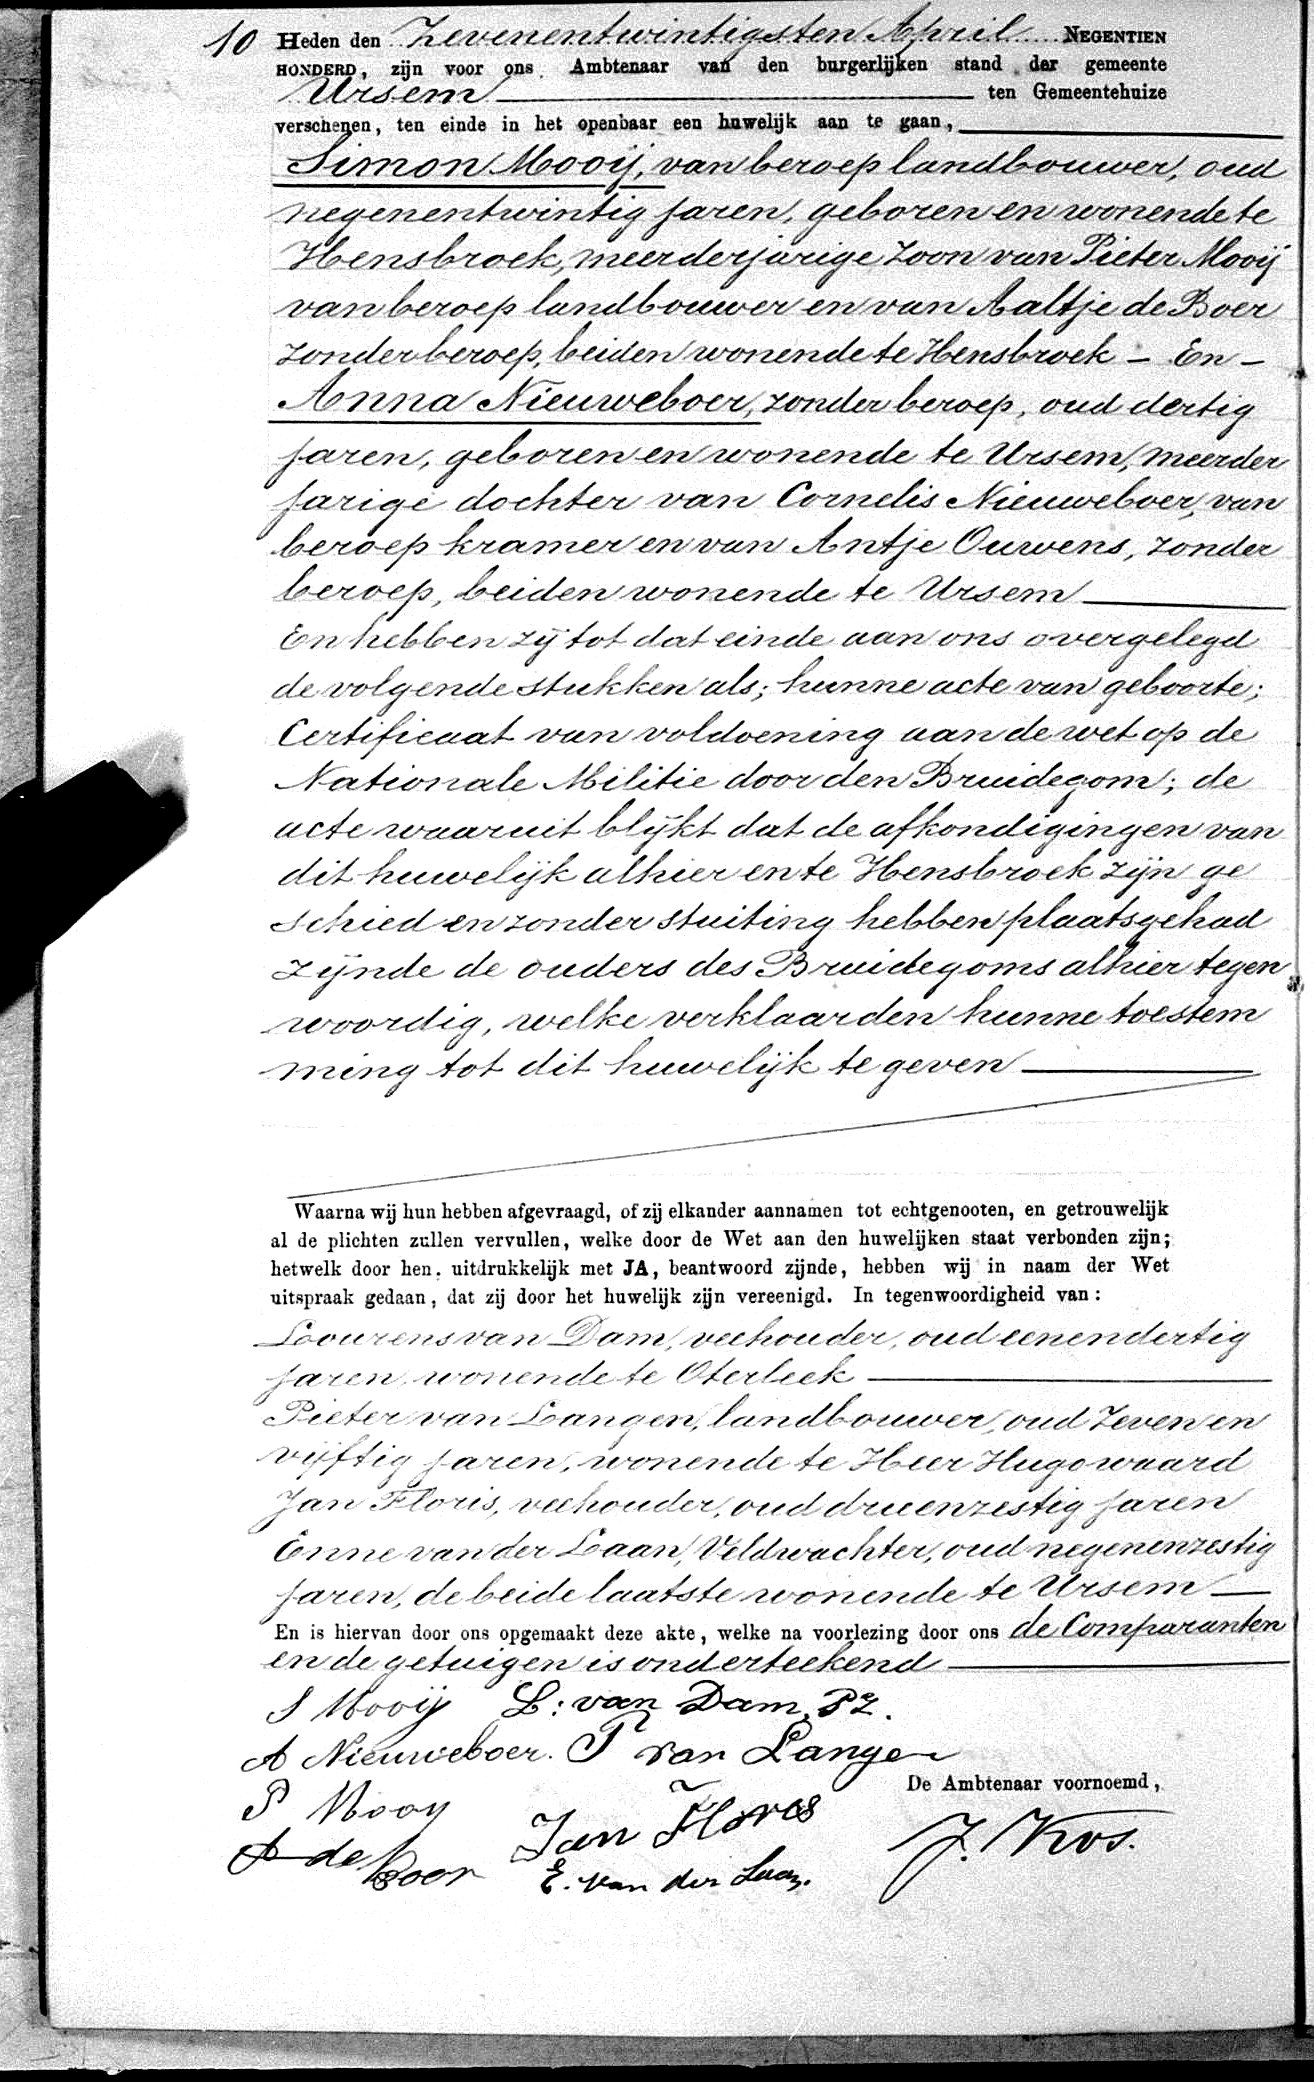 10 Heden den Zevenentwintigsten April NEGENTIEN
HONDERD, zijn voor ons Ambtenaar van den burgerlijken stand der gemeente
Ursem ten Gemeentehuize
verschenen, ten einde in het openbaar een huwelijk aan te gaan,
Simon Mooij, van beroep landbouwer, oud
negenentwintig jaren, geboren en wonende te
Hensbroek, meerderjarige Zoon van Pieter Mooij
van beroep landbouwer en van Aaltje de Boer
zonder beroep, beiden wonende te Hensbroek - En -
Anna Nieuweboer, zonder beroep, oud dertig
jaren, geboren en wonende te Ursem, meerder
jarige dochter van Cornelis Nieuweboer, van
beroep kramer en van Antje Ouwens, zonder
beroep, beiden wonende te Ursem
En hebben zij tot dat einde aan ons overgelegd
de volgende stukken als; hunne acte van geboorte;
Certificaat van voldoening aan de wet op de
Nationale Militie door den Bruidegom; de
acte waaruit blijkt dat de afkondigingen van
dit huwelijk alhier en te Hensbroek zijn ge
schied en zonder stuiting hebben plaatsgehad
zijnde de ouders des Bruidegoms alhier tegen
woordig, welke verklaarden hunne toestem
ming tot dit huwelijk te geven
Waarna wij hun hebben afgevraagd, of zij elkander aannamen tot echtgenooten, en getrouwelijk
al de plichten zullen vervullen, welke door de Wet aan den huwelijken staat verbonden zijn;
hetwelk door hen, uitdrukkelijk met JA, beantwoord zijnde, hebben wij in naam der Wet
uitspraak gedaan, dat zij door het huwelijk zijn vereenigd. In tegenwoordigheid van:
Lourens van Dam, veehouder, oud eenendertig
jaren, wonende te Oterleek
Pieter van Langen, landbouwer, oud Zeven en
vijftig jaren, wonende te Heer Hugowaard
Jan Floris, veehouder, oud drieenzestig jaren
Enne van der Laan, Veldwachter, oud negenenzestig
jaren, de beide laatste wonende te Ursem
En is hiervan door ons opgemaakt deze akte, welke na voorlezing door ons de Comparanten
en de getuigen is onderteekend
S Mooij L: van Dam. Pz.
A Nieuweboer. P van Langen
De Ambtenaar voornoemd,
P Mooy Jan Floris J. Kos.
A de Boer E. van der Laan.